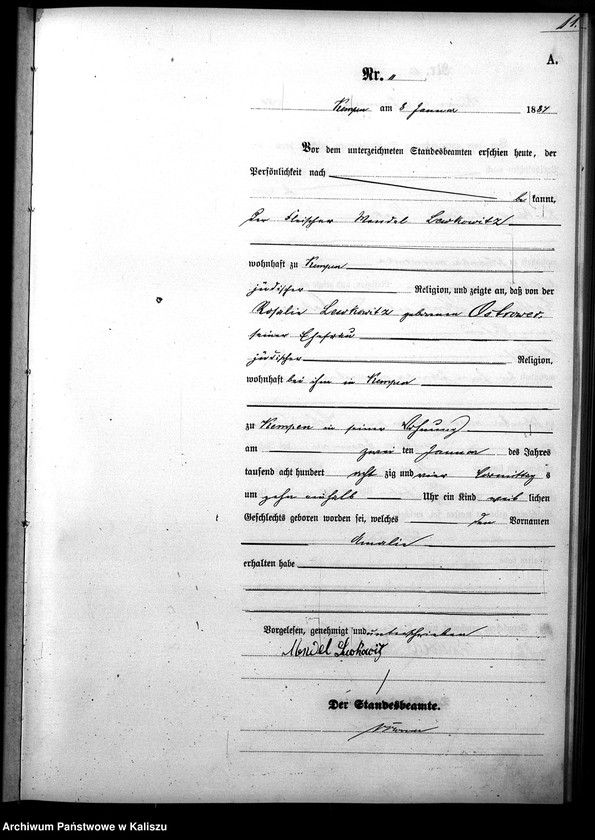 11.
A.
Nr. 11
Kempen am 8 Januar 1884
Vor dem unterzeichneten Standesbeamten erschien heute, der
Persönlichkeit nach
be kannt,
der Fleischer Mendel Lewkowitz
wohnhaft zu Kempen
jüdischer Religion, und zeigte an, daß von der
Rosalie Lewkowitz geborenen Ostrower,
seiner Ehefrau
jüdischer Religion,
wohnhaft bei ihm in Kempen
zu Kempen in seiner Wohnung
am zwei ten Januar des Jahres
tausend acht hundert acht zig und vier Vormittag s
um zehn einhalb Uhr ein Kind weib lichen
Geschlechts geboren worden sei, welches den Vornamen
Amalie
erhalten habe
Vorgelesen, genehmigt und unterschrieben
Mendel Lewkowitz
Der Standesbeamte.
Archiwum Państwowe w Kaliszu